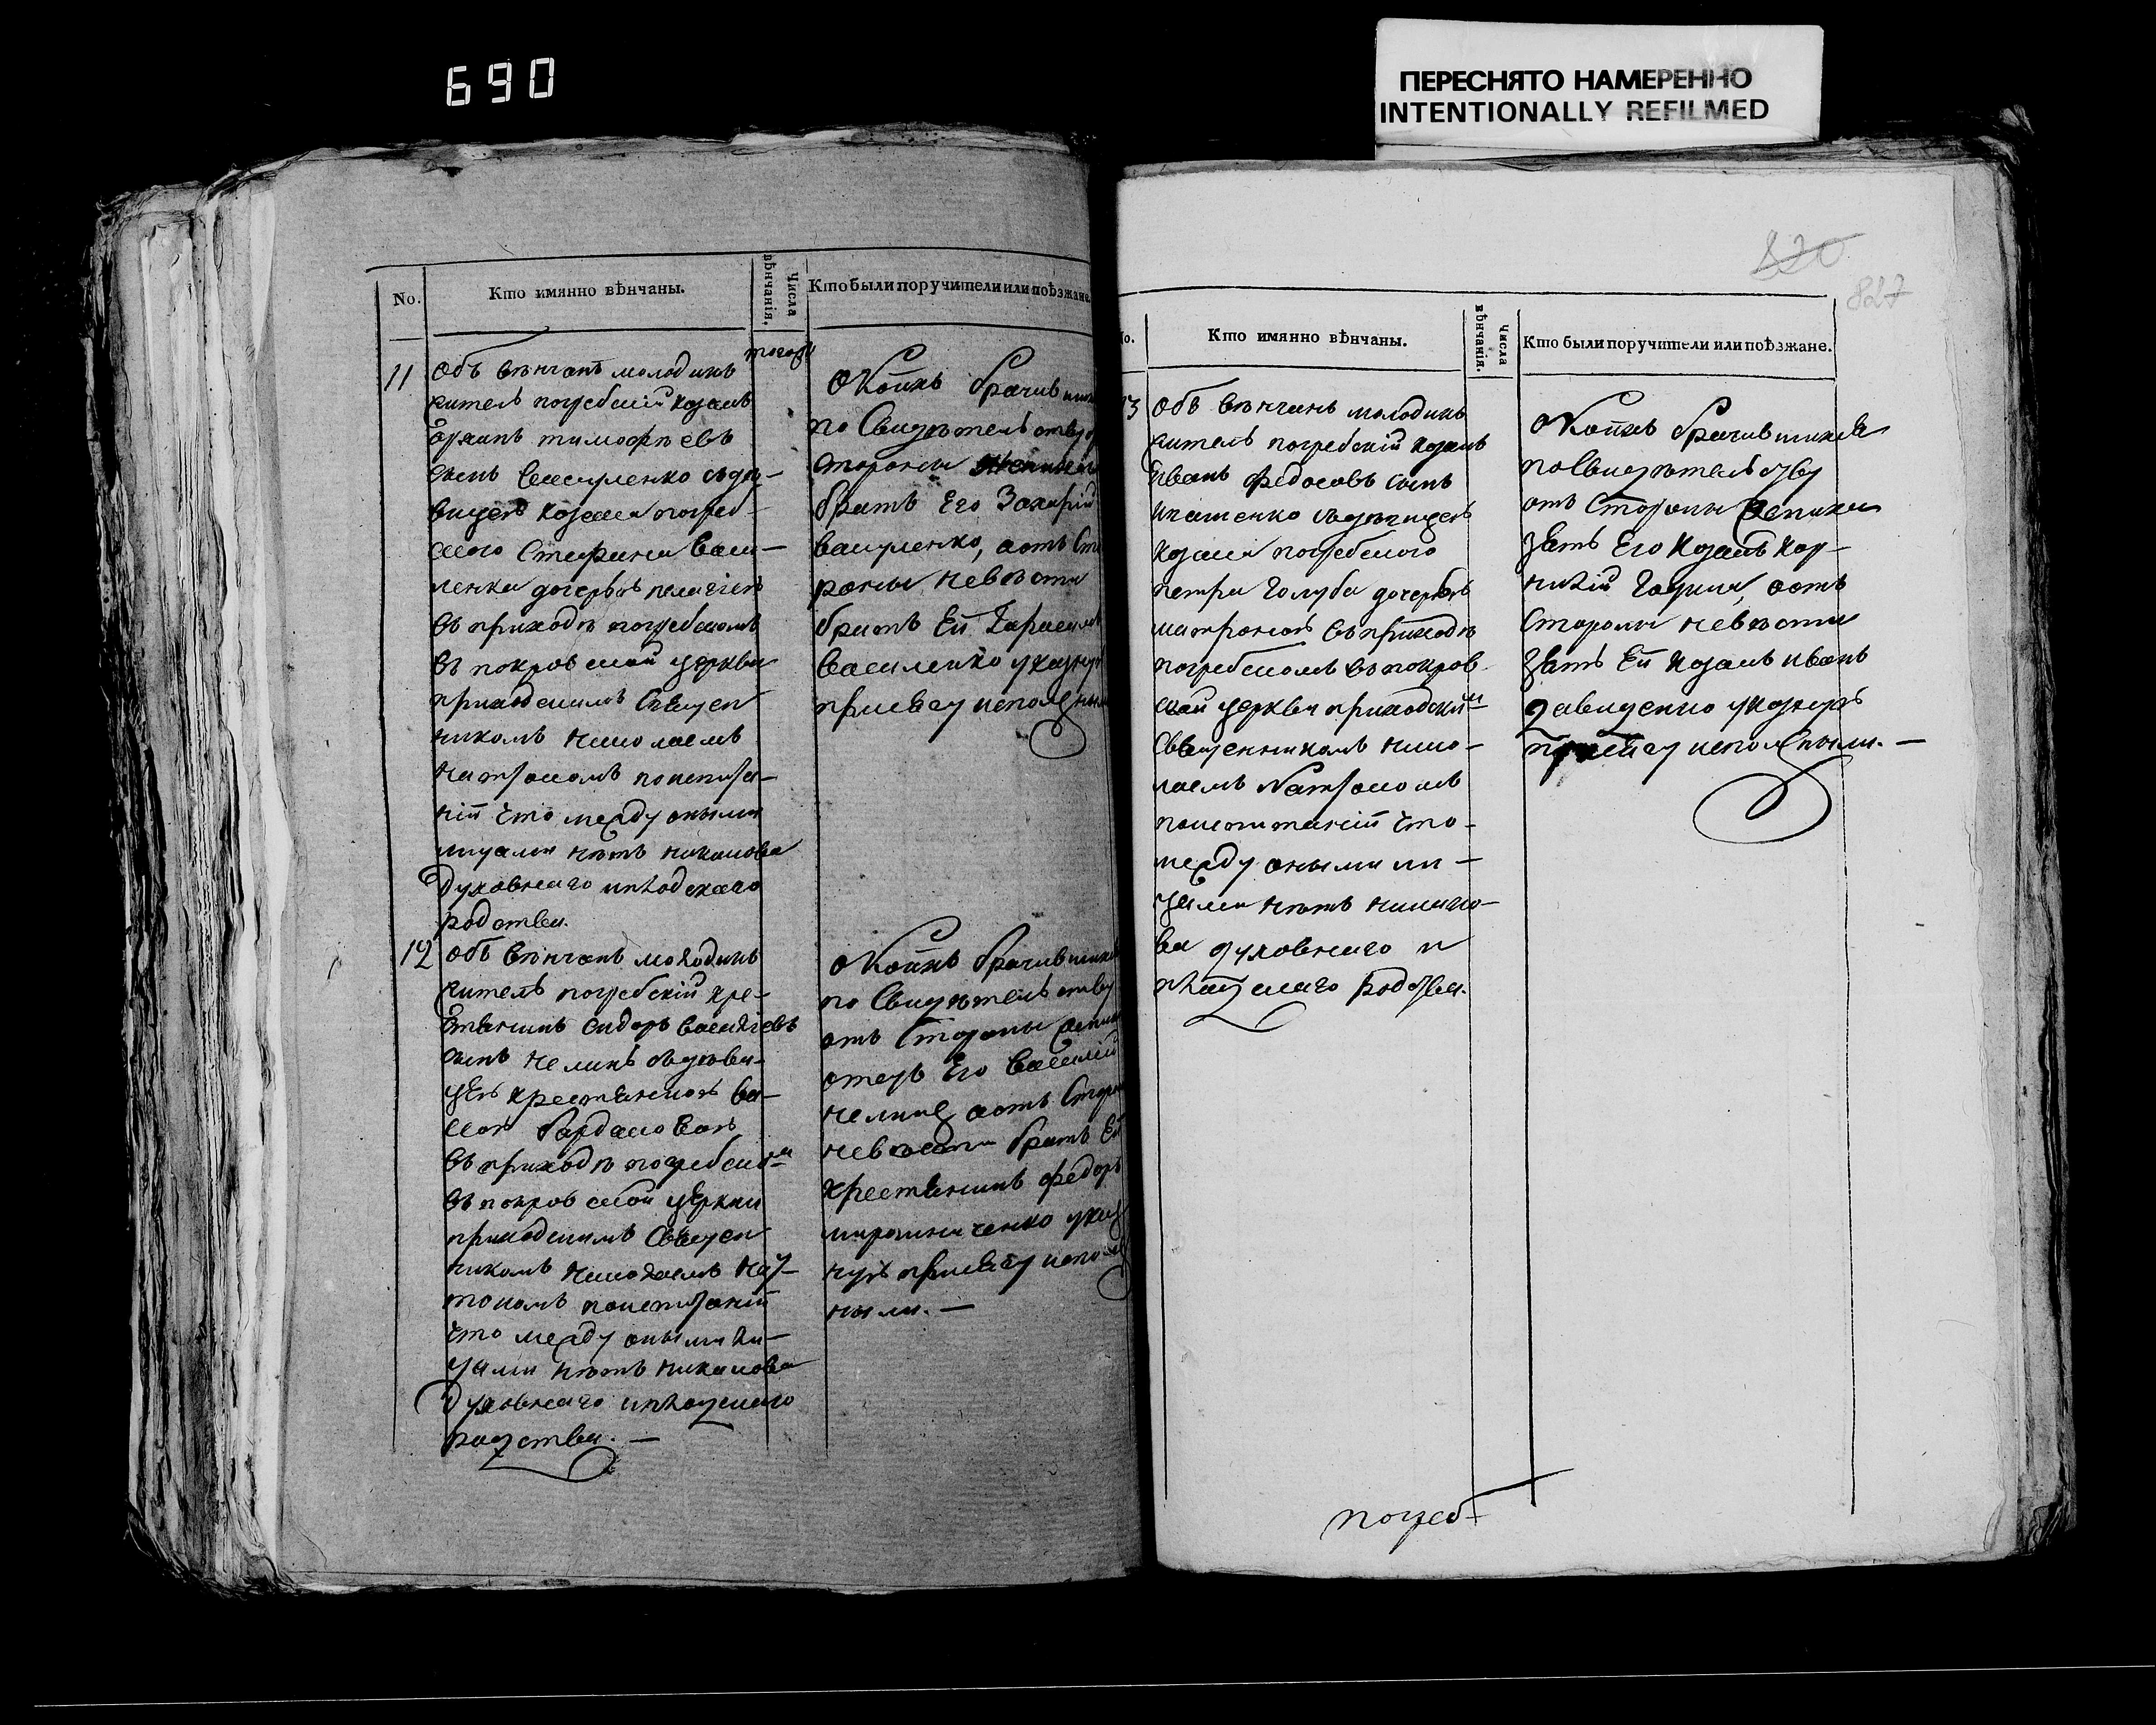 690
ПЕРЕСНЯТО НАМЕРЕННО
INTENTIONALLY REFILMED
No.
Кто имянно вѣнчаны.
Числа вѣнчанія,
Кто были поручители или поѣзжане.
11
тогож
Объ вѣнчанъ молодикъ
житель погребскій козакъ
тимофѣевъ
сынъ съдѣ-
вицею козака погреб-
ского Стефана Васи-
ленка дочерью пелагіею
въ приходѣ погребскомъ
въ покровской церкви
приходскимъ Священ
никомъ Николаемъ
по испыта-
ніи что между оными
лицами нѣтъ никакова
Духовнаго иплодскаго
родства.
О коихъ брачившихся
по Свидѣтельству
Стороны
братъ Его Захарій
аотъ Сто
роны невѣсты
братъ Ей Герасимъ
Василенко указную
присягу исполнили
12
Объ вѣнчанъ молодикъ
житель погребскій кре-
стянинъ Сидоръ Василіевъ
сынъ чепикъ
цею крестянкою Ва-
въ приходѣ погребском
въ покровской церкви
приходскимъ Священ
никомъ Николаемъ
поиспытаніи
что между оными ли-
цами нѣтъ никакова
Духовнаго
родства. —
О коихъ брачившихся
по Свидѣтельству
отъ Стороны
отецъ Его Василій
аотъ Сторо
невѣсты братъ Ей
крестянинъ федоръ
мирошниченко указ
ную присягу испол
нили. —
820
827
No.
Кто имянно вѣнчаны.
Числа вѣнчанія.
Кто были поручители или поѣзжане.
13
Объ вѣнчанъ молодикъ
житель погребскій козакъ
Иванъ федосовъ сынъ
Игнатенко здѣвицею
козака погребского
петра Голуба дочерью
матроною въ приходѣ
погребскомъ въ покров-
ской церкви приходским
Священникомъ Нико-
лаемъ
поиспытаніи что-
между оными ли-
цами нѣтъ никако-
ва духовнаго и
плотскаго родства.
О коихъ брачившихся
по Свидѣтельству
отъ Стороны жениха
зять Его козакъ Кор-
нилій аотъ
Стороны невѣсты
зять Ей козакъ иванъ
Давиденко указную
присягу исполнили. —
погреб-